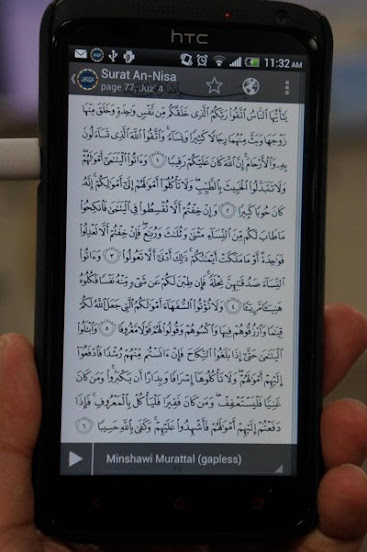 hTC
11:32 AM
Surat An-Nisa
page 77, Juz' 4
يَٰٓأَيُّهَا ٱلنَّاسُ ٱتَّقُوا۟ رَبَّكُمُ ٱلَّذِى خَلَقَكُم مِّن نَّفْسٍ وَٰحِدَةٍ وَخَلَقَ مِنْهَا
زَوْجَهَا وَبَثَّ مِنْهُمَا رِجَالًا كَثِيرًا وَنِسَآءً ۚ وَٱتَّقُوا۟ ٱللَّهَ ٱلَّذِى تَسَآءَلُونَ
بِهِۦ وَٱلْأَرْحَامَ ۚ إِنَّ ٱللَّهَ كَانَ عَلَيْكُمْ رَقِيبًا ١ وَءَاتُوا۟ ٱلْيَتَٰمَىٰٓ أَمْوَٰلَهُمْ ۖ
وَلَا تَتَبَدَّلُوا۟ ٱلْخَبِيثَ بِٱلطَّيِّبِ ۖ وَلَا تَأْكُلُوٓا۟ أَمْوَٰلَهُمْ إِلَىٰٓ أَمْوَٰلِكُمْ ۚ إِنَّهُۥ
كَانَ حُوبًا كَبِيرًا ٢ وَإِنْ خِفْتُمْ أَلَّا تُقْسِطُوا۟ فِى ٱلْيَتَٰمَىٰ فَٱنكِحُوا۟
مَا طَابَ لَكُم مِّنَ ٱلنِّسَآءِ مَثْنَىٰ وَثُلَٰثَ وَرُبَٰعَ ۖ فَإِنْ خِفْتُمْ أَلَّا تَعْدِلُوا۟
فَوَٰحِدَةً أَوْ مَا مَلَكَتْ أَيْمَٰنُكُمْ ۚ ذَٰلِكَ أَدْنَىٰٓ أَلَّا تَعُولُوا۟ ٣ وَءَاتُوا۟
ٱلنِّسَآءَ صَدُقَٰتِهِنَّ نِحْلَةً ۚ فَإِن طِبْنَ لَكُمْ عَن شَىْءٍ مِّنْهُ نَفْسًا فَكُلُوهُ
هَنِيٓـًٔا مَّرِيٓـًٔا ٤ وَلَا تُؤْتُوا۟ ٱلسُّفَهَآءَ أَمْوَٰلَكُمُ ٱلَّتِى جَعَلَ ٱللَّهُ لَكُمْ
قِيَٰمًا وَٱرْزُقُوهُمْ فِيهَا وَٱكْسُوهُمْ وَقُولُوا۟ لَهُمْ قَوْلًا مَّعْرُوفًا ٥ وَٱبْتَلُوا۟
ٱلْيَتَٰمَىٰ حَتَّىٰٓ إِذَا بَلَغُوا۟ ٱلنِّكَاحَ فَإِنْ ءَانَسْتُم مِّنْهُمْ رُشْدًا فَٱدْفَعُوٓا۟
إِلَيْهِمْ أَمْوَٰلَهُمْ ۖ وَلَا تَأْكُلُوهَآ إِسْرَافًا وَبِدَارًا أَن يَكْبَرُوا۟ ۚ وَمَن كَانَ
غَنِيًّا فَلْيَسْتَعْفِفْ ۖ وَمَن كَانَ فَقِيرًا فَلْيَأْكُلْ بِٱلْمَعْرُوفِ ۚ فَإِذَا
دَفَعْتُمْ إِلَيْهِمْ أَمْوَٰلَهُمْ فَأَشْهِدُوا۟ عَلَيْهِمْ ۚ وَكَفَىٰ بِٱللَّهِ حَسِيبًا ٦
Minshawi Murattal (gapless)